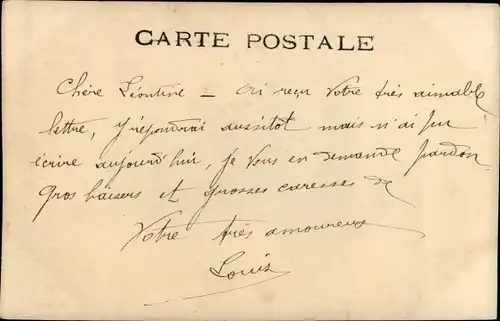 CARTE POSTALE
Chère Léontine – Ai reçu Votre très aimable
lettre, y répondrai aussitôt mais n'ai pu
écrire aujourd'hui, je Vous en demande pardon.
Gros baisers et grosses caresses de
Votre très amoureux
Louis